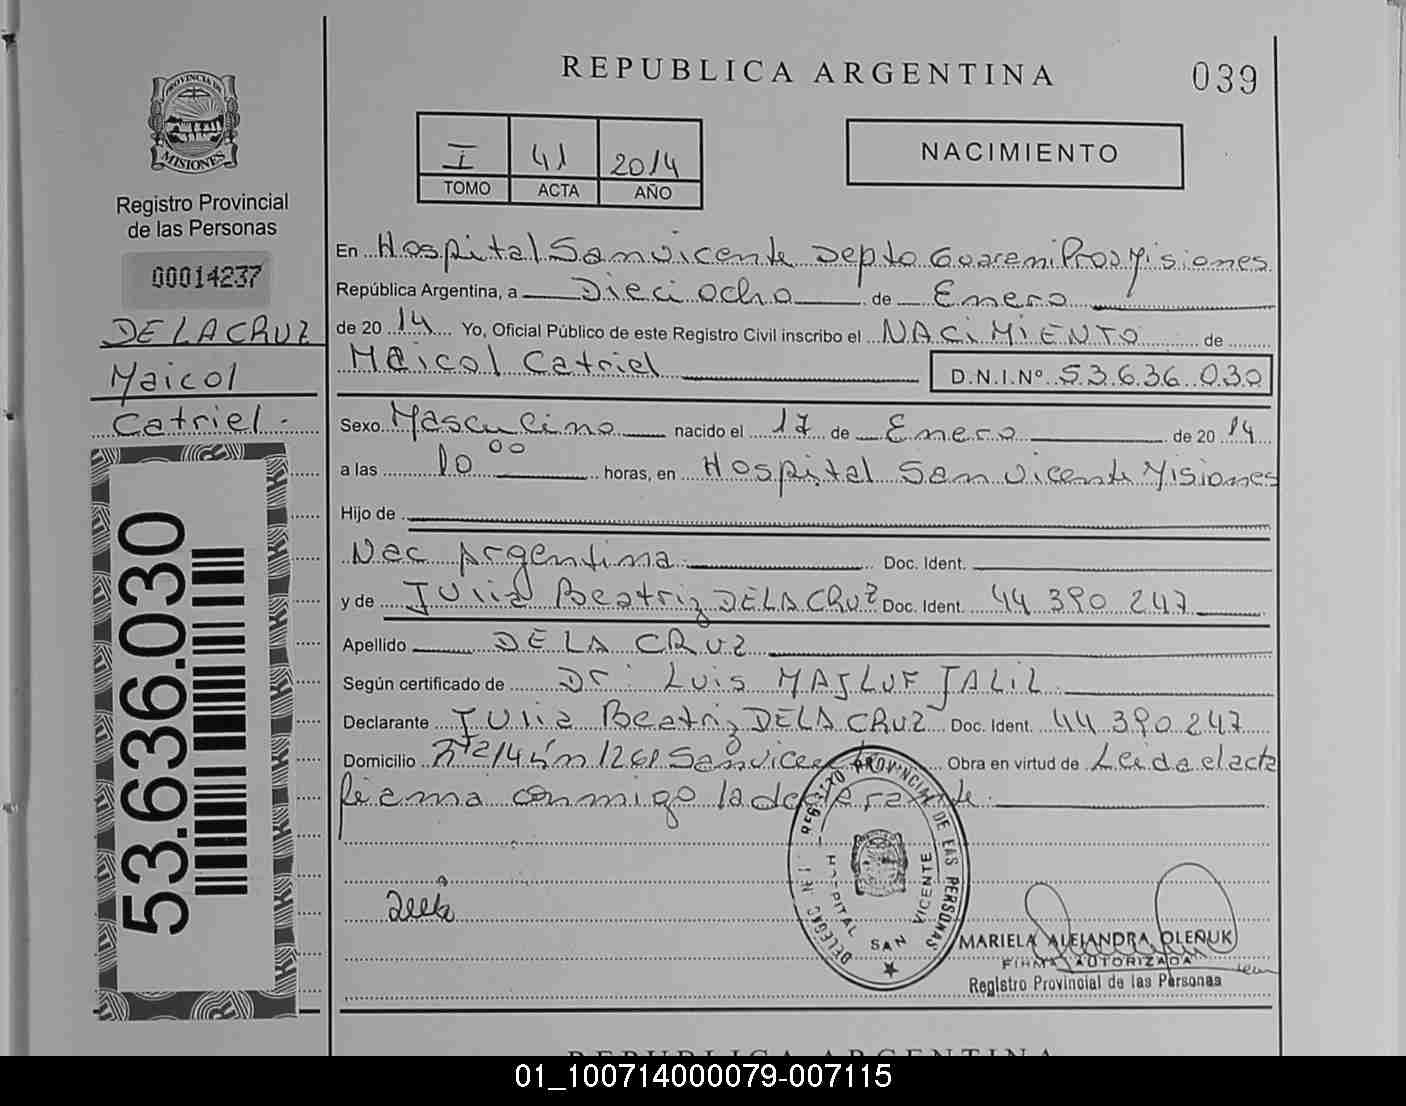 REPUBLICA ARGENTINA
039
PROVINCIA DE
MISIONES
Registro Provincial
de las Personas
00014237
DE LA CRUZ
Maicol
Catriel.-
53.636.030
I 41 2014
TOMO ACTA AÑO
NACIMIENTO
En Hospital San vicente Depto Guarani Prov Misiones
República Argentina, a Dieciocho de Enero
de 20 14 Yo, Oficial Público de este Registro Civil inscribo el NACIMIENTO de
Maicol Catriel D.N.I.Nº 53.636.030
Sexo Masculino nacido el 17 de Enero de 20 14
a las 10 00 horas, en Hospital San vicente Misiones
Hijo de
Nac Argentina Doc. Ident.
y de Julia Beatriz DE LA CRUZ Doc. Ident. 44 390 247
Apellido DE LA CRUZ
Según certificado de Dr: Luis MAJLUF JALIL
Declarante Julia Beatriz DE LA CRUZ Doc. Ident. 44.390.247
Domicilio 1261 San vicente Obra en virtud de Leida el acta
firma conmigo la declarante.
REGISTRO PROVINCIAL DE LAS PERSONAS
HOSPITAL SAN VICENTE
MARIELA ALEJANDRA OLENUK
FIRMA AUTORIZADA
Registro Provincial de las Personas
REPUBLICA ARGENTINA
01_100714000079-007115